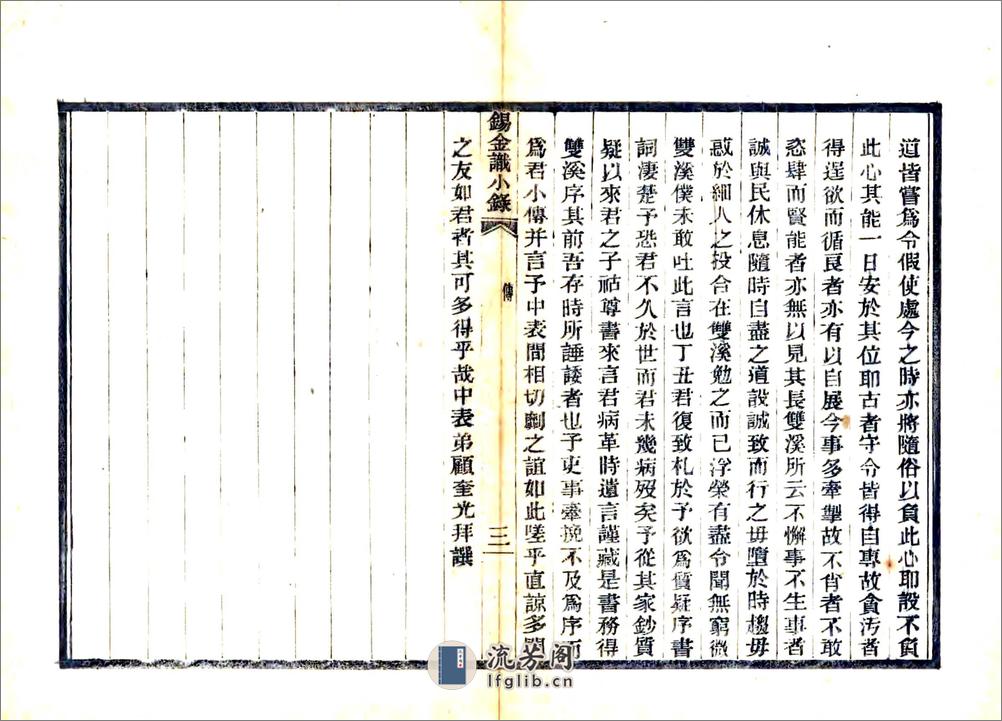 道皆嘗爲令假使處今之時亦將隨俗以負此心耶設不負
此心其能一日安於其位耶古者守令皆得自專故貪汚者
得逞欲而循良者亦有以自展今事多牽掣故不肖者不敢
恣肆而賢能者亦無以見其長雙溪所云不懈事不生事者
誠與民休息隨時自盡之道設誠致而行之毋墮於時趨毋
惑於細人之投合在雙溪勉之而已浮榮有盡令聞無窮微
雙溪僕未敢吐此言也丁丑君復致札於予欲爲質疑序書
詞淒楚予恐君不久於世而君未幾病歿矣予從其家鈔質
疑以來君之子祜尊書來言君病革時遺言謹藏是書務得
雙溪序其前吾存時所諈諉者也予吏事牽挽不及爲序而
爲君小傳并言予中表間相切劘之誼如此嗟乎直諒多聞
之友如君者其可多得乎哉中表弟顧奎光拜譔
錫金識小錄
傳
三
流芳阁
lfglib.cn